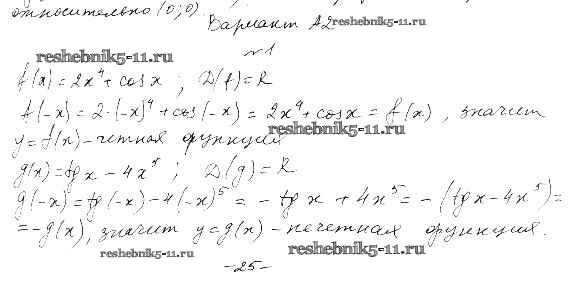 относительно (0;0)
Вариант А2 reshebnik5-11.ru
№1
reshebnik5-11.ru
f(x) = 2x⁴ + cos x ; D(f) = R
f(-x) = 2·(-x)⁴ + cos(-x) = 2x⁴ + cosx = f(x), значит
y = f(x) - четная функция reshebnik5-11.ru
g(x) = tg x - 4x⁵ ; D(g) = R
g(-x) = tg(-x) - 4(-x)⁵ = - tg x + 4x⁵ = - (tg x - 4x⁵) =
= -g(x), значит y = g(x) - нечетная функция.
reshebnik5-11.ru reshebnik5-11.ru
-25-